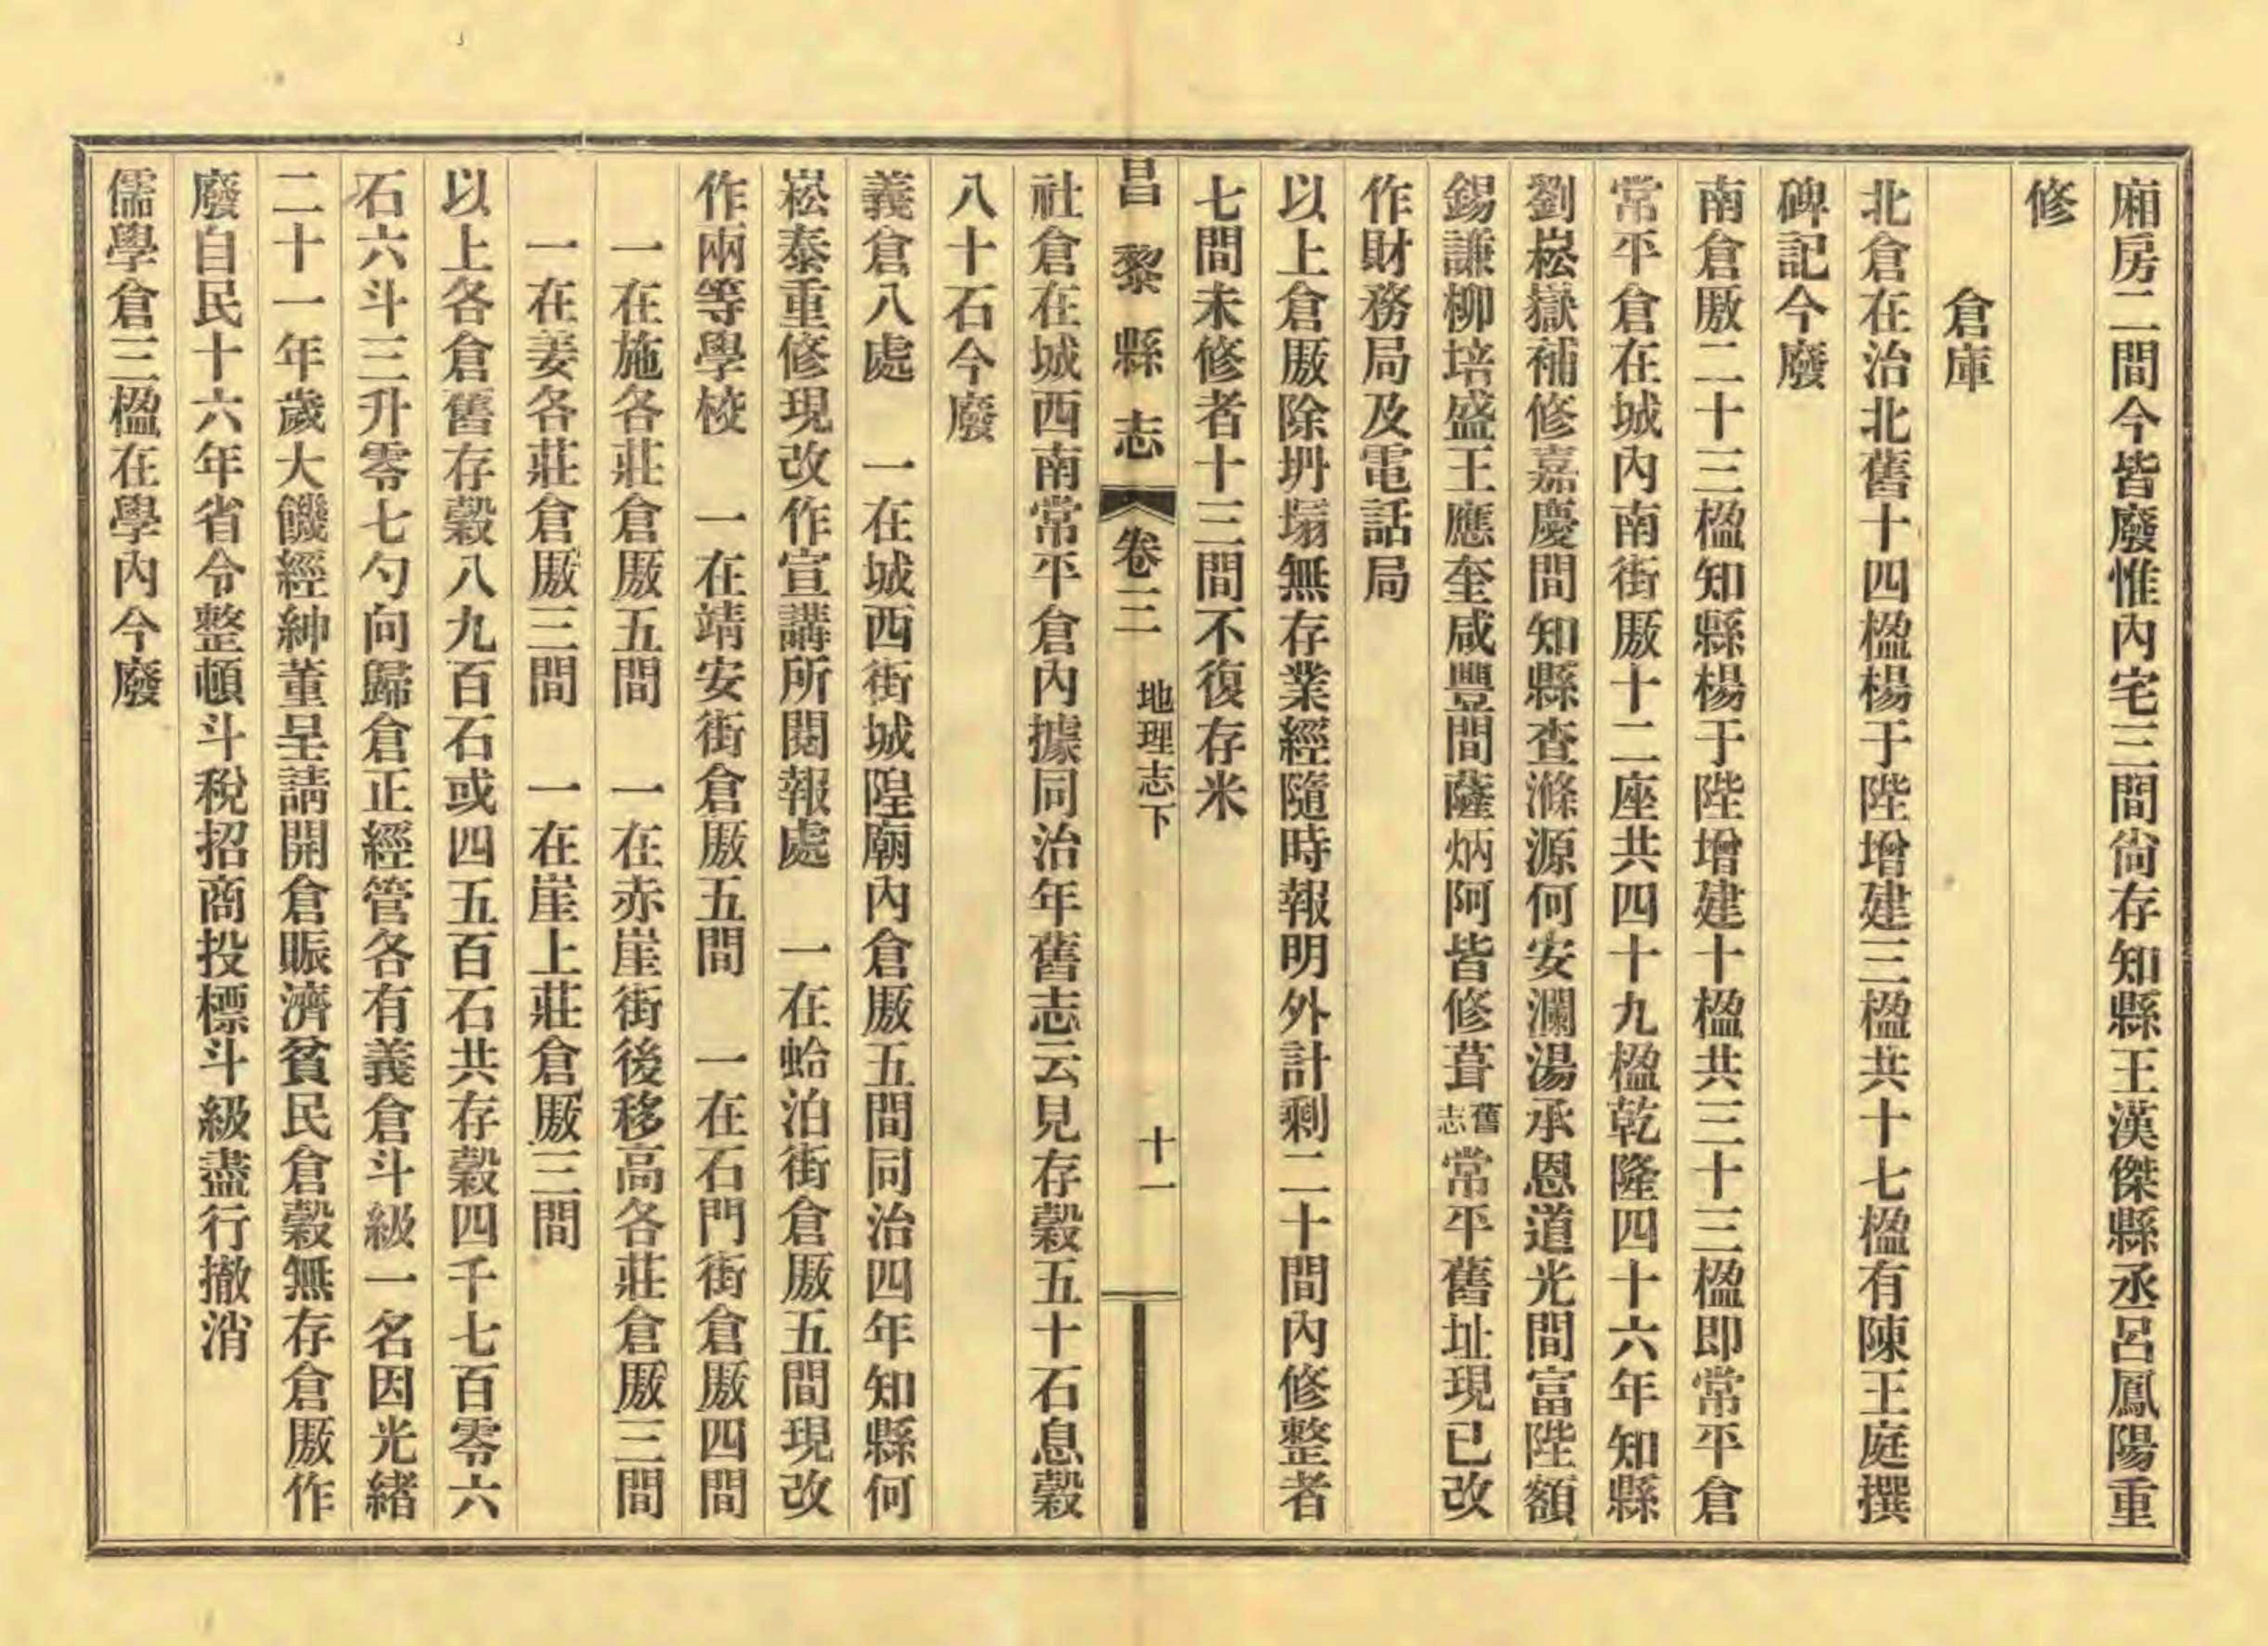 廂房二間今皆廢惟內宅三間尙存知縣王漢傑縣丞呂鳳陽重
修
倉庫
北倉在治北舊十四楹楊于陛增建三楹共十七楹有陳王庭撰
碑記今廢
南倉厫二十三楹知縣楊于陛增建十楹共三十三楹即常平倉
常平倉在城內南街厫十二座共四十九楹乾隆四十六年知縣
劉崧嶽補修嘉慶間知縣查滌源何安瀾湯承恩道光間富陞額
錫謙柳培盛王應奎咸豐間薩炳阿皆修葺舊志常平舊址現已改
作財務局及電話局
以上倉厫除坍塌無存業經隨時報明外計剩二十間內修整者
七間未修者十三間不復存米
昌黎縣志 卷三 地理志下 十一
社倉在城西南常平倉內據同治年舊志云見存穀五十石息穀
八十石今廢
義倉八處 一在城西街城隍廟內倉厫五間同治四年知縣何
崧泰重修現改作宣講所閱報處 一在蛤泊街倉厫五間現改
作兩等學校 一在靖安街倉厫五間 一在石門街倉厫四間
一在施各莊倉厫五間 一在赤崖街後移高各莊倉厫三間
一在姜各莊倉厫三間 一在崖上莊倉厫三間
以上各倉舊存穀八九百石或四五百石共存穀四千七百零六
石六斗三升零七勺向歸倉正經管各有義倉斗級一名因光緒
二十一年歲大饑經紳董呈請開倉賑濟貧民倉穀無存倉厫作
廢自民十六年省令整頓斗稅招商投標斗級盡行撤消
儒學倉三楹在學內今廢